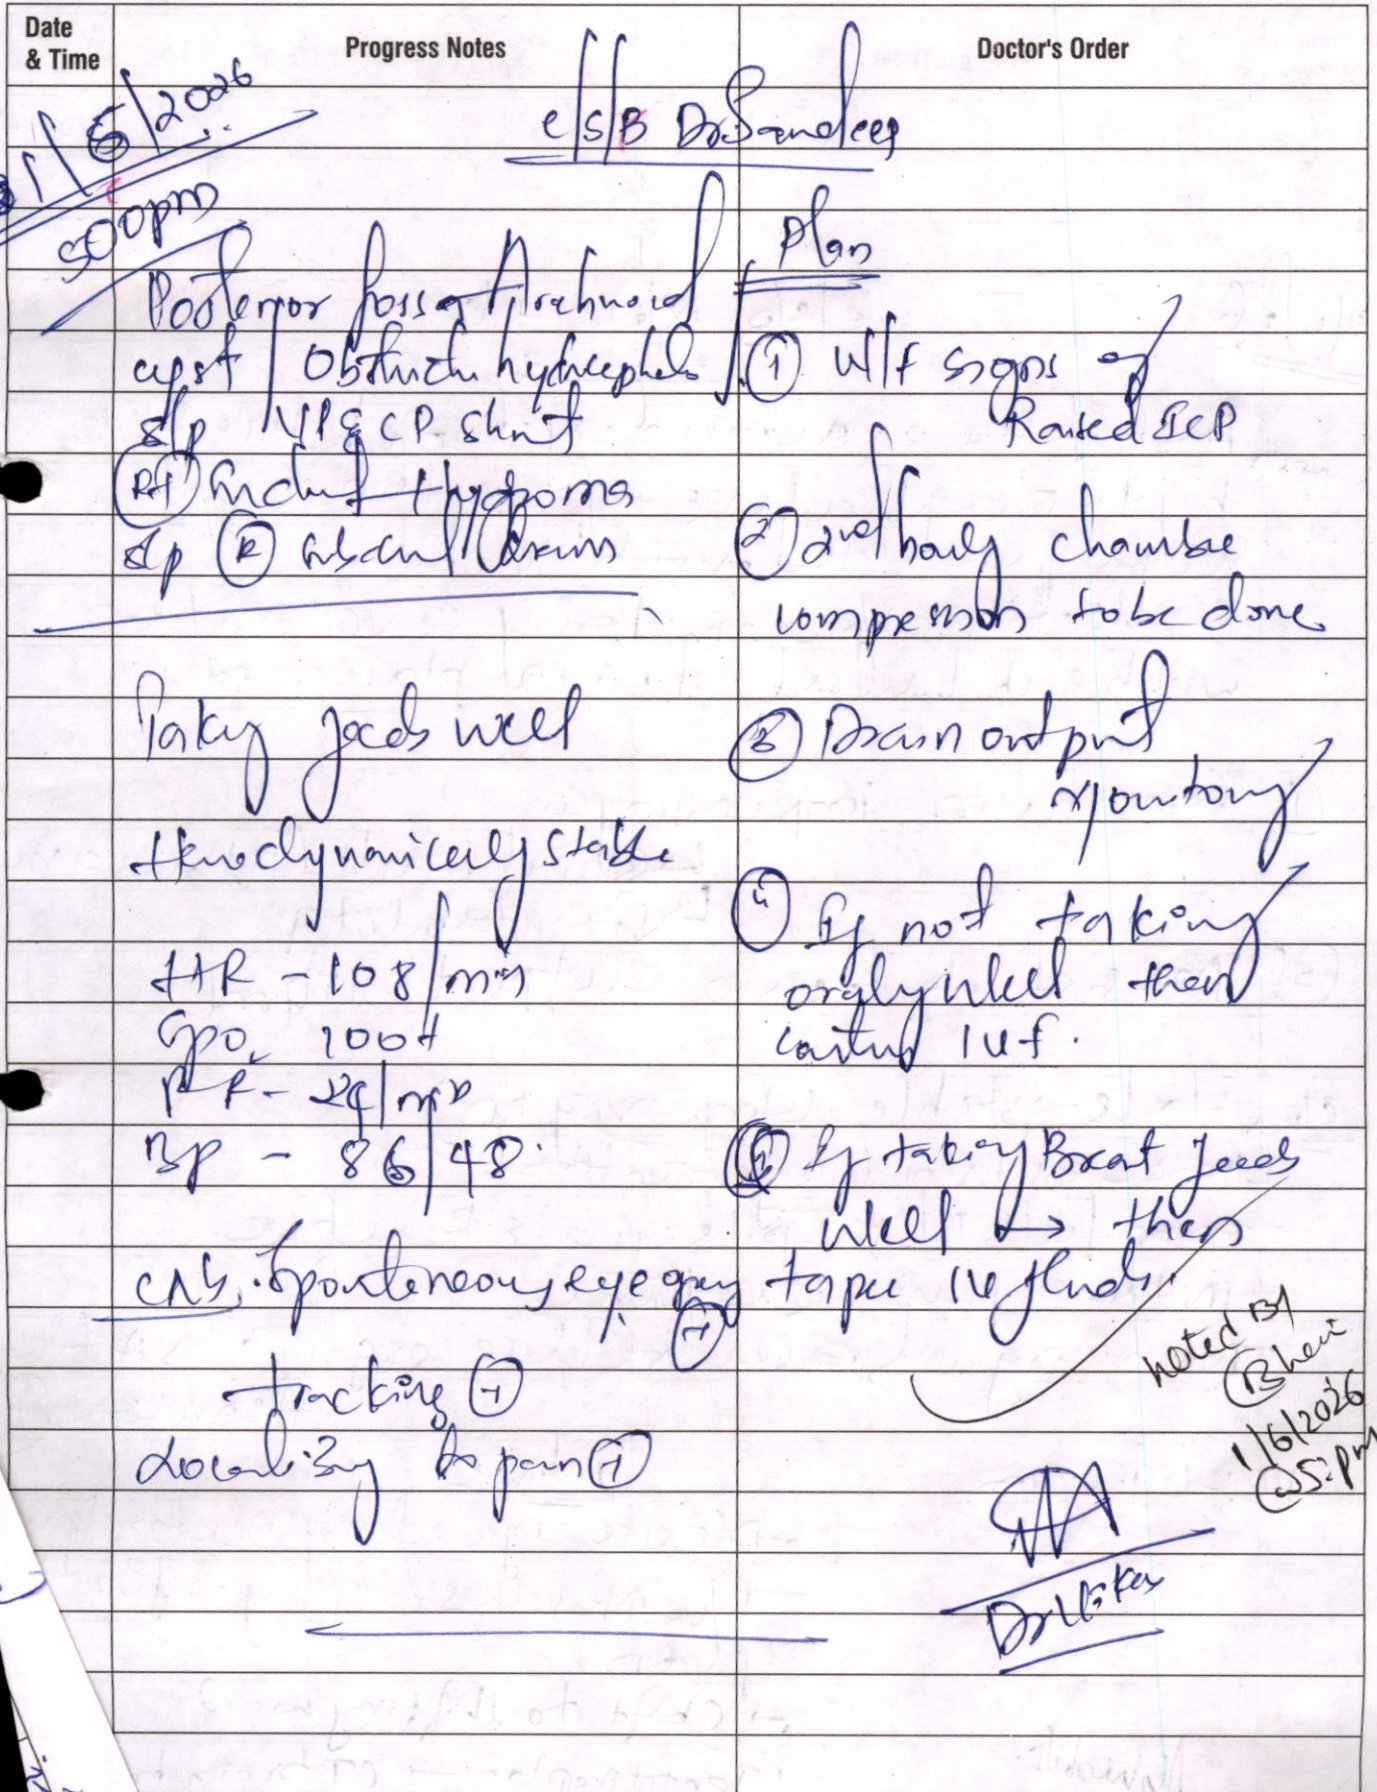 Date
& Time
Progress Notes
Doctor's Order
1/6/2026
500pm
c/s/B Dr Sandeep
Posterior fossa Arachnoid
cyst / Obstructive hydrocephalus
s/p VP & CP shunt
Rt Hygroma
s/p (R) subdural drain
Taking feeds well
Hemodynamically stable
HR - 108/min
SpO2 100%
RR - 24/min
BP - 86/48
CNS. Spontaneous eye opening
(+)
tracking (+)
Localising to pain (+)
Plan
(1) W/F signs of
Raised ICP
(2) 2nd hourly chamber
compression to be done
(3) Drain output
Monitoring
(4) If not taking
orally well then
continue IVF.
(5) If taking Breast feeds
well → then
taper IV fluids.
Noted By
1/6/2026
@5:pm